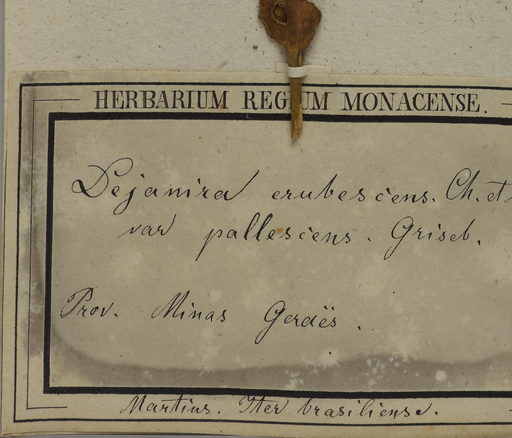 HERBARIUM REGIUM MONACENSE.
Dejanira erubescens. Ch. et
var pallescens. Griseb.
Prov. Minas Geraës.
Martius. Iter brasiliense.